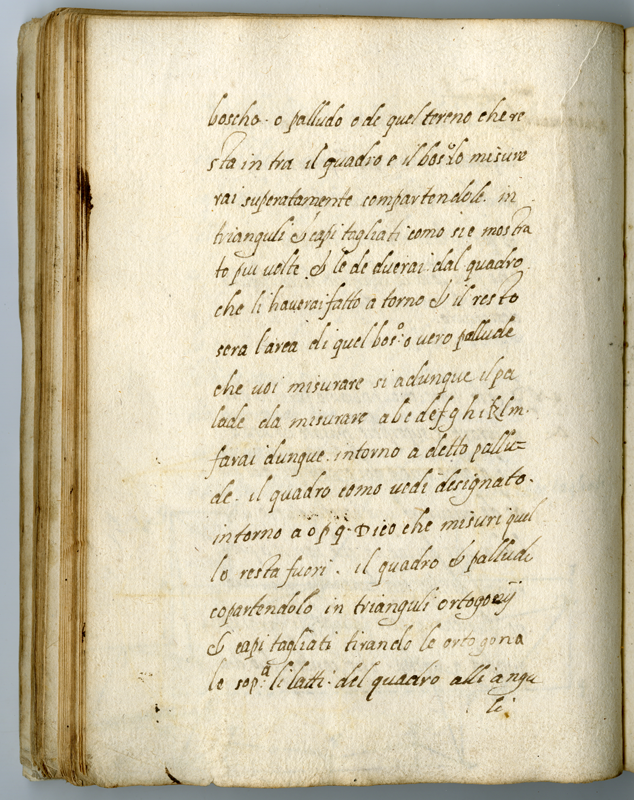 boscho. o palludo e de quel tereno che re
sta in tra il quadro e il bosco lo misure
rai superatamente compartendole. in
trianguli & capi tagliati como si e mostra
to piu uolte & le de duerai dal quadro
che li haverai fatto a torno & il resto
sera l'area di quel bos:o o vero pallude
che voi misurare si adunque il pa
lude da misurare a b c d e f g h i k l m.
farai dunque. intorno a detto pallu=
de. il quadro como uedi designato.
intorno a o p q. Dico che misuri quel
lo resta fuori. il quadro & pallude
copartendolo in trianguli ortogonij
& capi tagliati tirando le ortogona
le sop:a li latti. del quadro alli angu
li